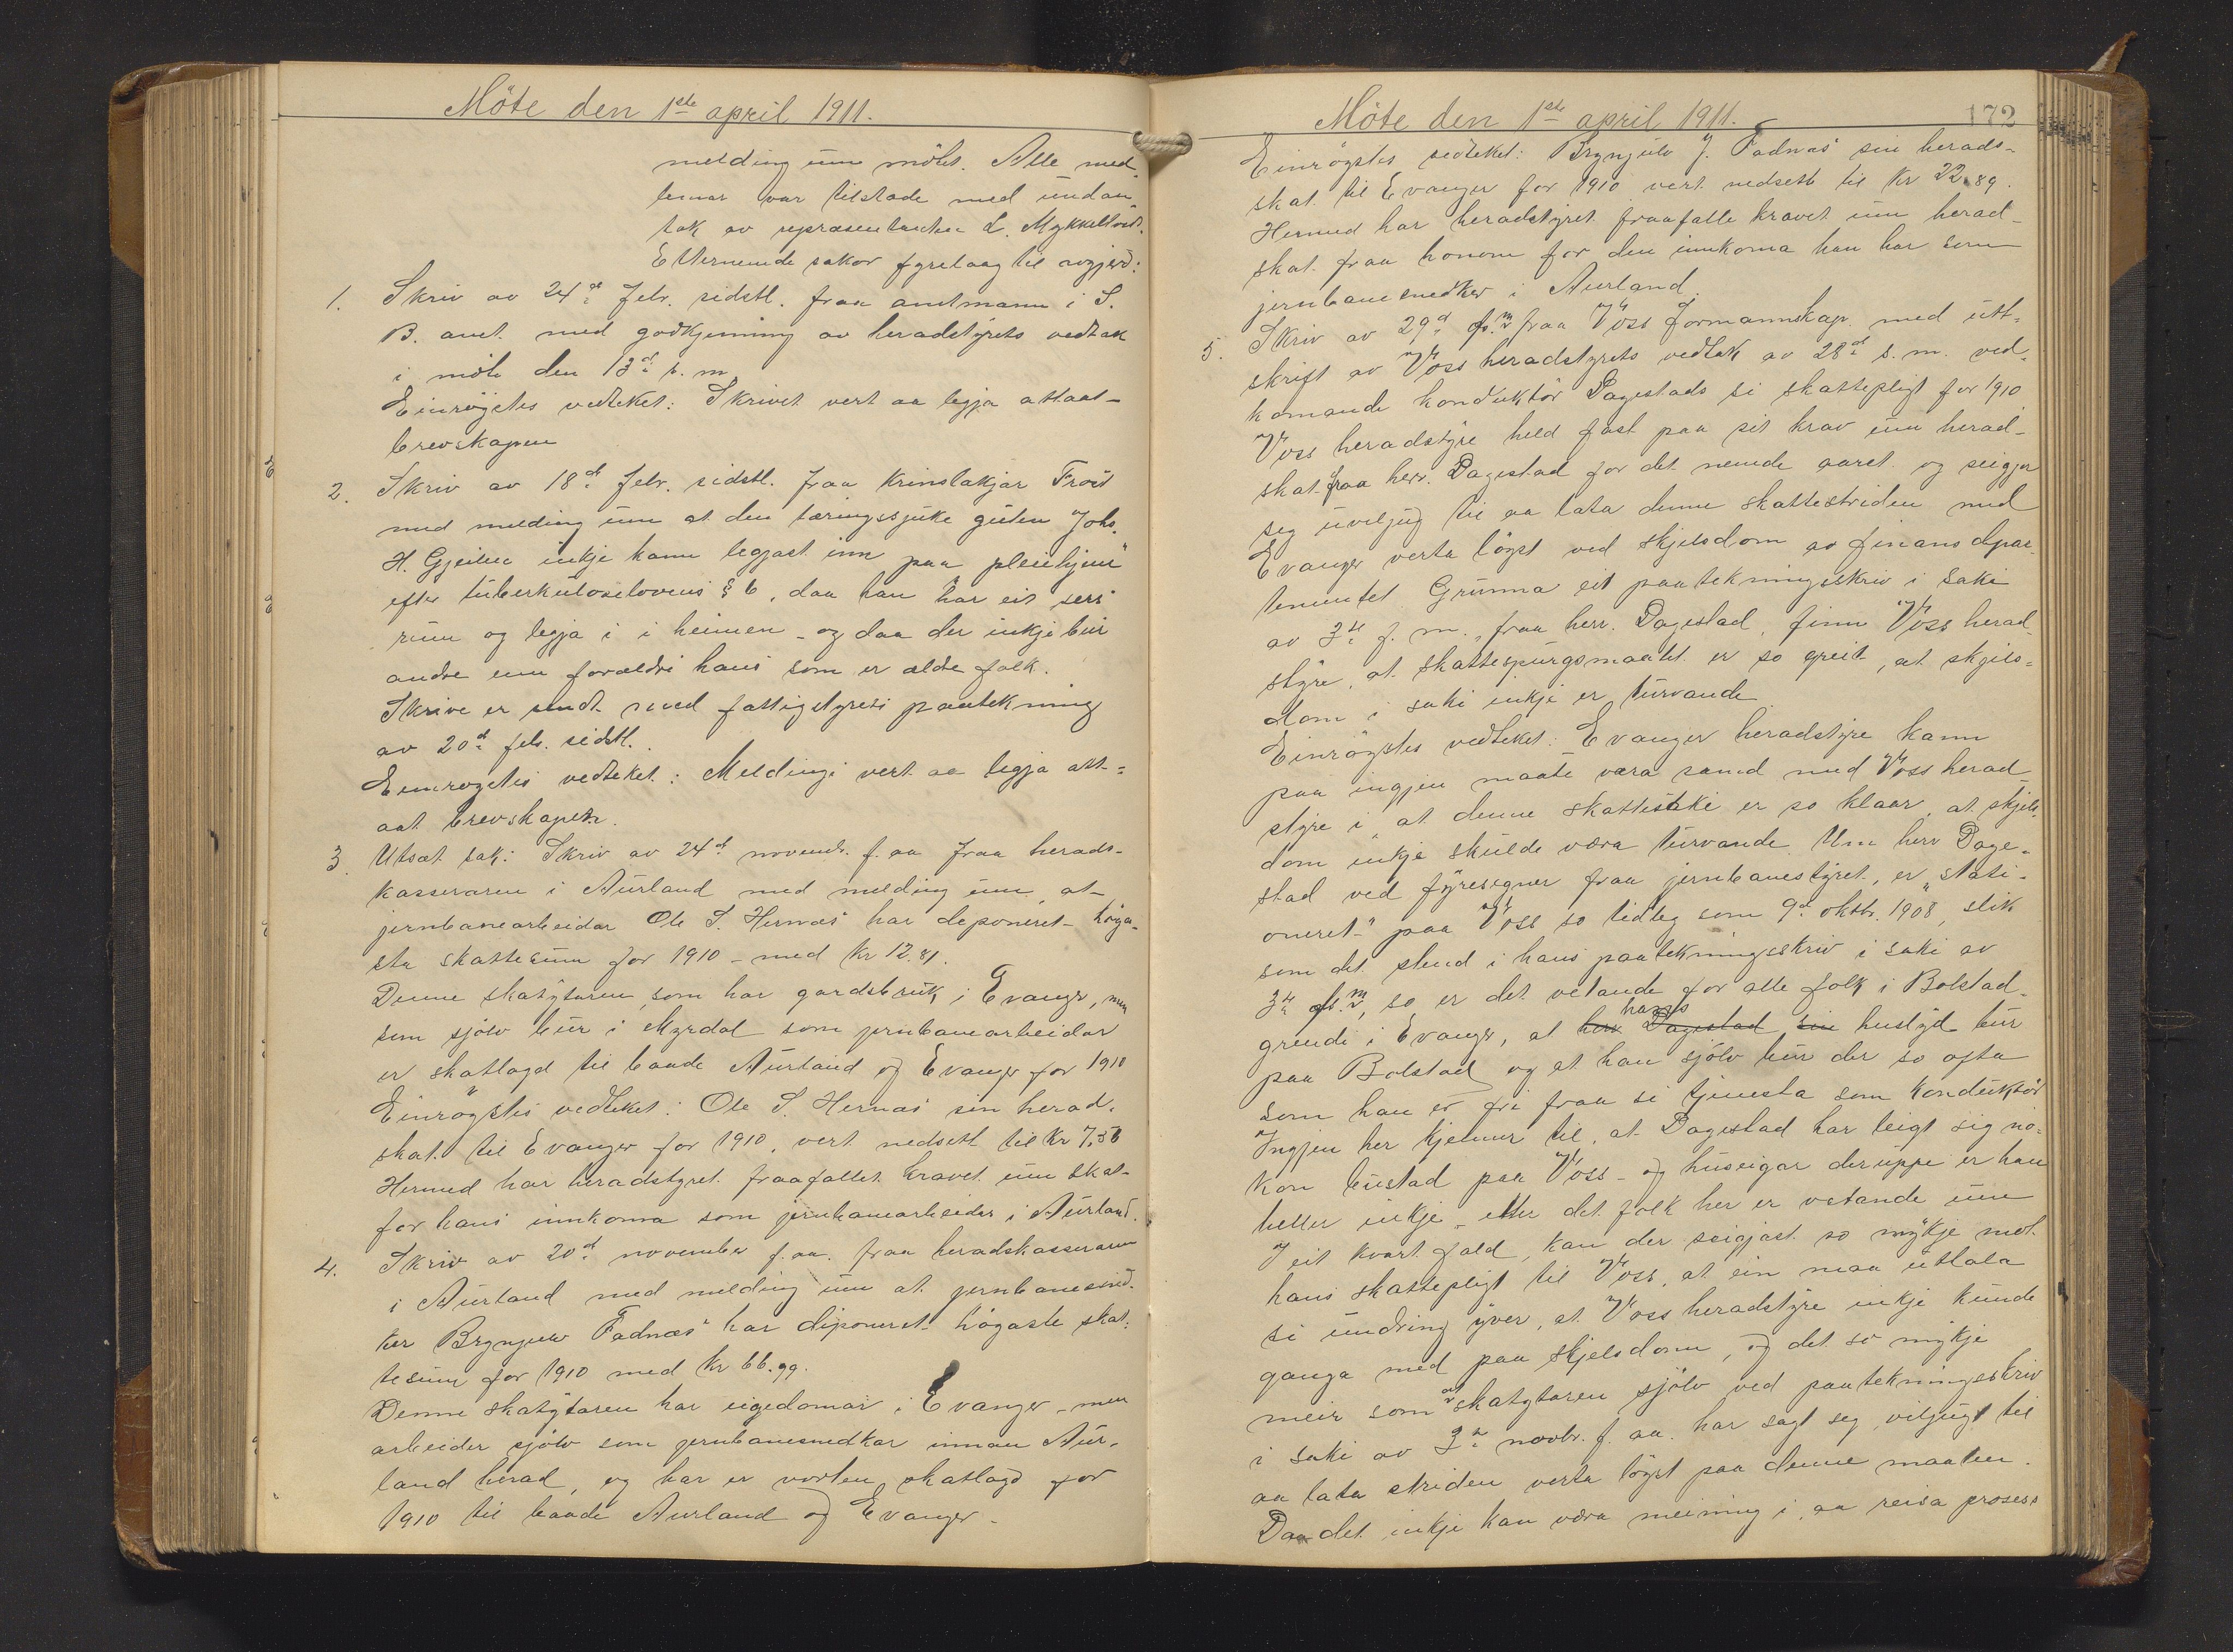 Möte den 1ste april 1911.
melding um mötet. Alle med-
lemar var tilstade med undan-
tak av repræsentanten L. Mykkeltvedt.
Etternemde sakor fyretaag til avgjerd:
1. Skriv av 24de febr. sidstl. fraa amtmann i S.
B. amt. med godkjenning av heradstyrets vedtak
i möte den 13de s. m.
Einröystes vedteket: Skrivet vert aa legja attaat
brevskapen
2. Skriv av 18de febr. sidstl. fraa Krinslækjar Troit
med melding um at den tæringssjuke guten Johs.
H. Gjeilna inkje kann leggjast inn paa pleiehjem"
efter tuberkuloselovens § 6, daa han har eit sers
rum og legja i i heimen - og daa der inkje bur
andre enn foreldri hans som er aldre folk.
Skrive er sendt med fattigstyrets paatekning
av 20de feb. sidstl.
Einröystes vedteket: Meldingi vert aa legja att-
aat brevskapen.
3. Utsat sak: Skriv av 24de novembr. f. aa fraa herads-
kasseraren i Aurland med melding um, at
jernbanearbeidar Ole S. Hernæs har deponeret höga-
sta skattesum for 1910 - med kr 12.81.
Denne skatytaren som har gardsbruk i Evanger, men
som sjölv bur i Myrdal som jernbanearbeidar
er skatlagd til baade Aurland og Evanger for 1910
Einröystes vedteket: Ole S. Hernæs sin herad-
skat til Evanger for 1910, vert nedsett til Kr 7.58
Hermed har heradstyret fraafallet kravet um skat
for hans innkoma som jernbanearbeidar i Aurland.
4. Skriv av 20de november f. aa. fraa heradskasseraren
i Aurland med melding um at jernbanesmed-
ker Brynjulv Fadnæs har deponeret högaste skat-
tesum for 1910 med kr 66.99.
Denne skatytaren har eigedomar i Evanger - men
arbeider sjölv som jernbanesnedkar innan Aur-
land herad, og har er vorten skatlagd for
1910 til baade Aurland og Evanger.
Möte den 1ste april 1911.
172
Einröystes vedteket: Brynjulv J. Fadnæs sin herads-
skat til Evanger for 1910 vert nedsett til kr 22.89.
Hermed har heradstyret fraafalle kravet um herad-
skat fraa honom for den innkoma han har som
jernbanesnedker i Aurland.
5. Skriv av 29de f. m. fraa Voss formannskap med ut-
skrift av Voss heradstyrets vedtak av 28de s. m. ved-
komande konduktör Dagestads si skattepligt for 1910
Voss heradstyre held fast paa sit krav um herad-
skat fraa herr. Dagestad for det nemde aaret og seigjer
seg uviljug til aa lata denne skattestriden med
Evanger verta löyst ved skjelsdom av finansdepar-
tementet. Grunna eit paatekningsskriv i saki
av 3die f. m. fraa herr. Dagestad, finn Voss herad-
styre, at skattespurgsmaalet er so greit, at skjels-
dom i saki inkje er turvande
Einröystes vedteket: Evanger heradstyre kann
paa ingjen maate væra samd med Voss herad-
styre i, at denne skattesaki er so klaar, at skjels-
dom inkje skulde væra turvande. Um herr Dage-
stad ved fyresegner fraa jernbanestyret, er "stasi-
oneret" paa Voss so tidleg som 9de oktbr. 1908, slik
som det stend i hans paatekningsskriv i saki av
3die f. m., so er det vetande for alle folk i Bolstad-
grendi i Evanger, at herr Dagestad sin hans huslyd bur
paa Bolstad og at han sjölv bur der so ofta
som han er fri fraa si tjenesta som konduktör
Ingjen her kjenner til, at Dagestad har leigt seg no-
kon bustad paa Voss - og huseigar deruppe er han
heller inkje - etter det folk her er vetande um
I eit kvart fald, kan der seigjast so mykje mot
hans skattepligt til Voss, at ein maa uttala
si undring yver, at Voss heradstyre inkje kunde
ganga med paa skjelsdom, og det so mykje
meir som skatytaren sjölv ved paatekningsskriv
i saki av 3die novbr. f. aa. har sagt seg viljugt til
aa lata striden verta löyst paa denne maaten.
Daa det inkje kan væra meining i, aa reisa prosess